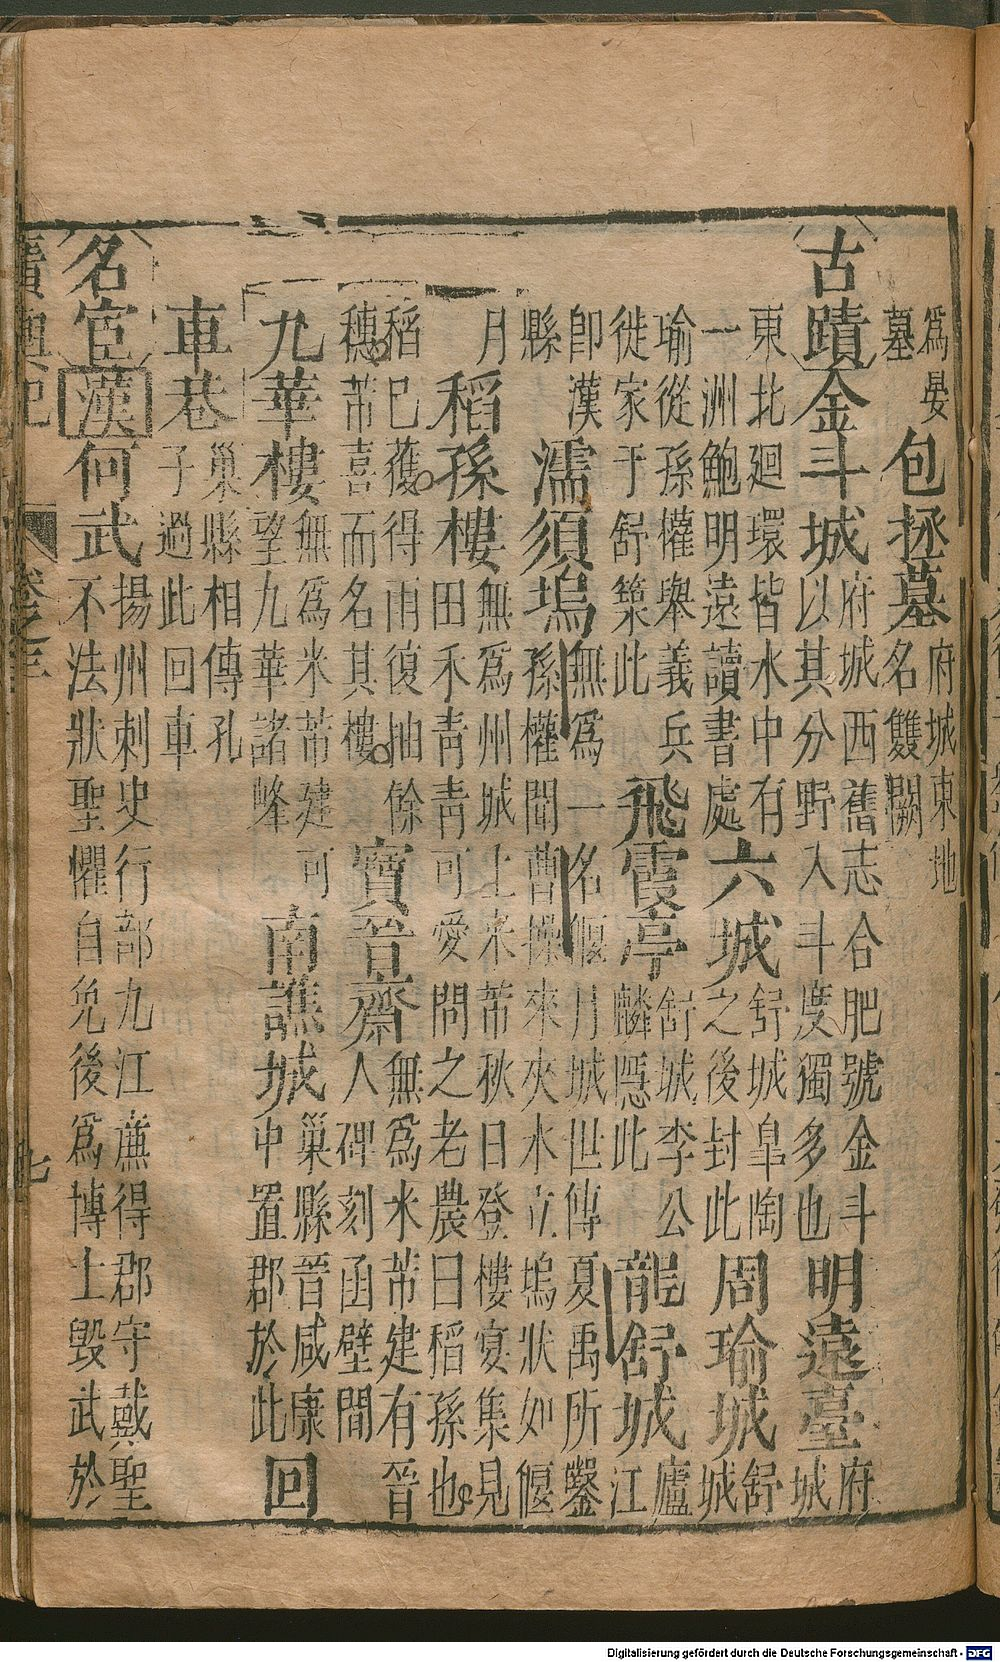 為晏墓包拯墓府城東地名雙闕
古蹟金斗城府城西舊志合肥號金斗以其分野入斗度獨多也明遠臺府城
東北廻環皆水中有一洲鮑明遠讀書處六城舒城皐陶之後封此周瑜城舒城
瑜從孫權舉義兵徙家于舒築此飛霞亭舒城李公麟隱此龍舒城廬江
即漢縣濡須塢無爲一名偃月城世傳夏禹所鑿孫權聞曹操來夾水立塢狀如偃
月稻孫樓無爲州城上米芾秋日登樓宴集見田禾青青可愛問之老農曰稻孫也
稻巳穫得雨復抽餘穗芾喜而名其樓寶晉齋無爲米芾建有晉人碑刻函壁間
九華樓無爲米芾建可望九華諸峰南譙城巢縣晉咸康中置郡於此回
車巷巢縣相傳孔子過此回車
名宦漢何武揚州刺史行部九江亷得郡守戴聖不法狀聖懼自免後爲博士毀武於
廣輿記 卷之三 七
Digitalisierung gefördert durch die Deutsche Forschungsgemeinschaft - DFG